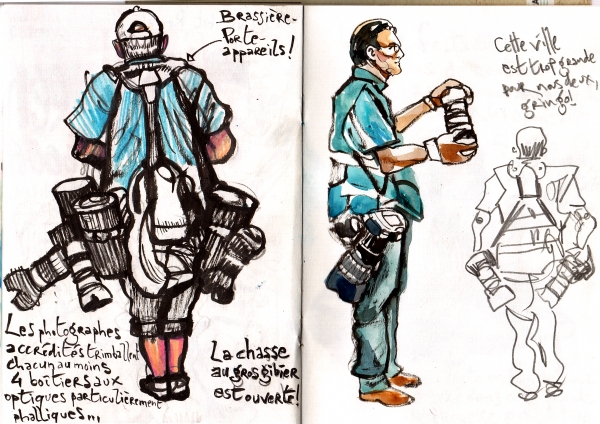 Brassière-
Porte-
appareils!
Les photographes
accrédités trimballent
chacun au moins
4 boîtiers aux
optiques particulièrement
phalliques...
La chasse
au gros gibier
est ouverte!
Cette ville
est trop grande
pour nous deux,
gringo!